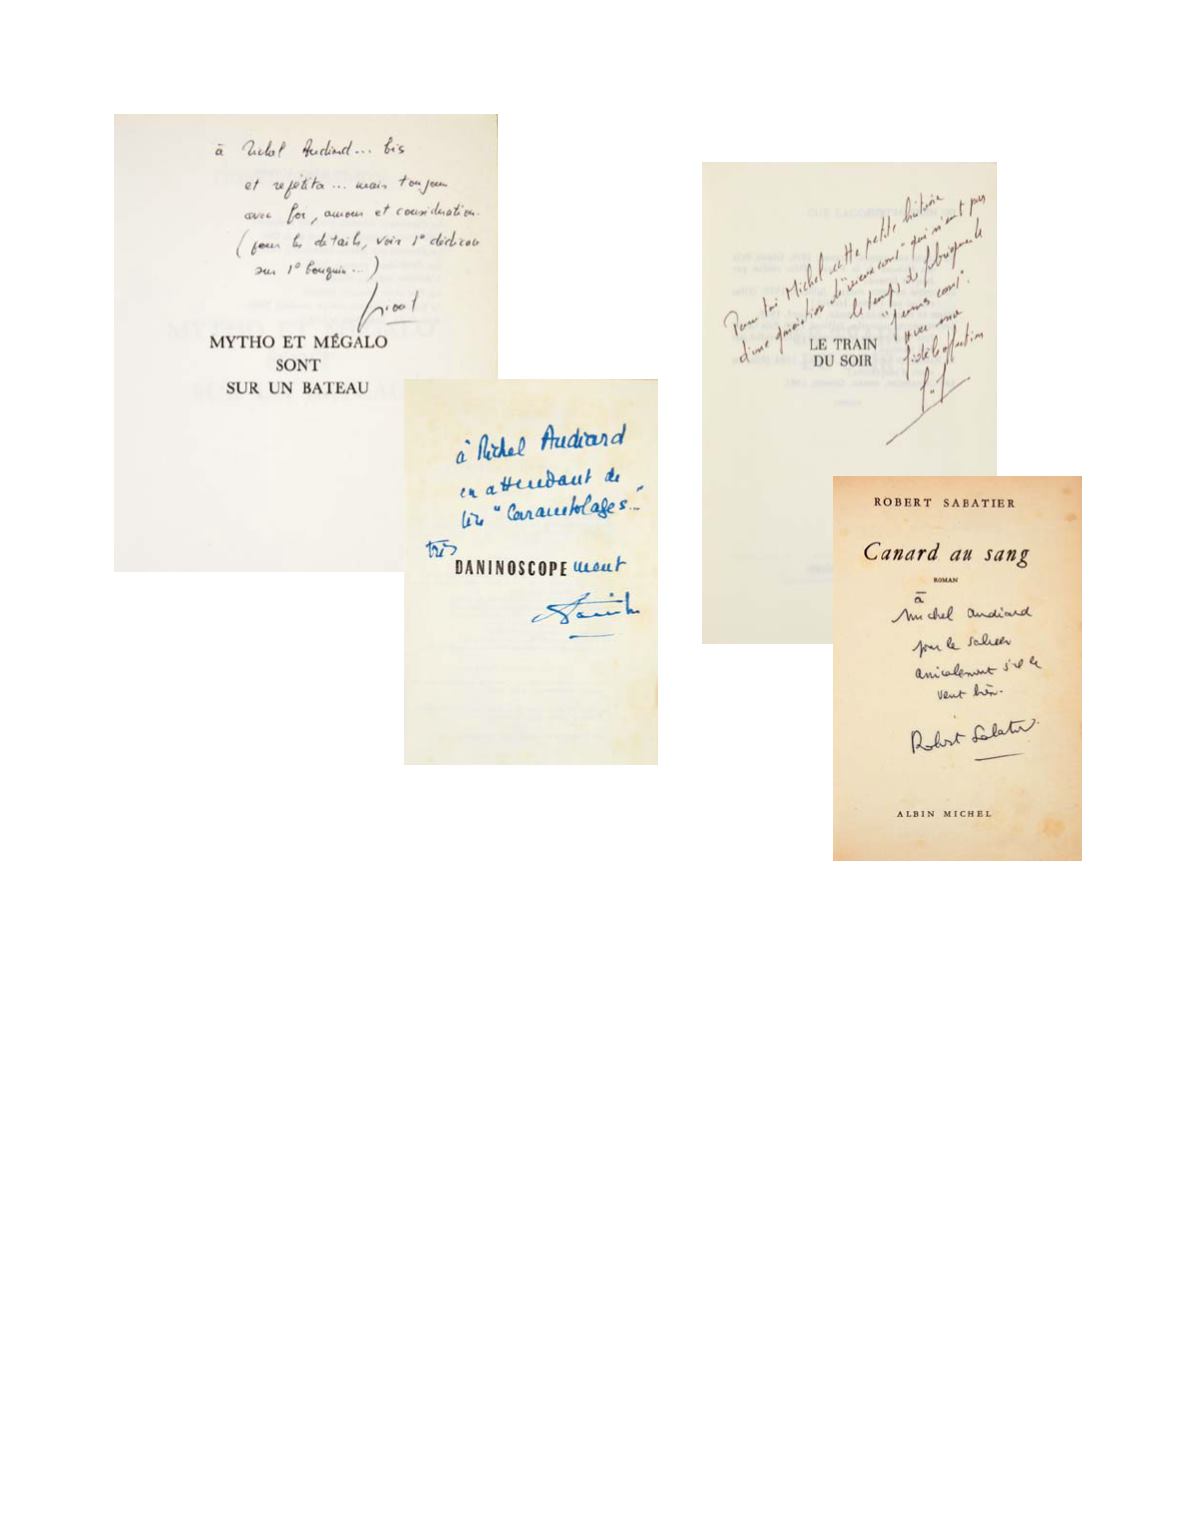 à Michel Audiard... bis
et repétita... mais toujours
avec foi, amour et considération.
(pour les détails, voir 1° dédicace
sur 1° bouquin...)
MYTHO ET MÉGALO
SONT
SUR UN BATEAU
à Michel Audiard
en attendant de
lire "Carambolages..."
très
DANINOSCOPE ment
Pour toi Michel cette petite histoire
d'une génération de "vieux cons" qui n'ont pas
le temps de fabriquer de
"jeunes cons".
avec ma
fidèle affection
LE TRAIN
DU SOIR
ROBERT SABATIER
Canard au sang
ROMAN
à
Michel Audiard
pour le saluer
amicalement s'il le
veut bien.
Robert Sabatier
ALBIN MICHEL